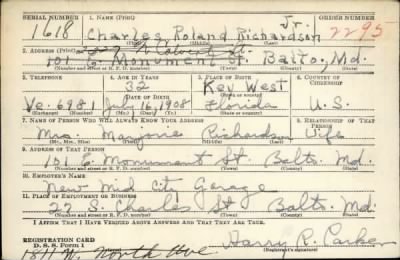 SERIAL NUMBER 1. NAME (Print) ORDER NUMBER
1618 Charles Roland Richardson Jr. 2295
(First) (Middle) (Last)
2. ADDRESS (Print) 2227 N. Calvert St.
101 E. Monument St. Balto. Md.
(Number and street or R. F. D. number) (Town) (County) (State)
3. TELEPHONE 4. AGE IN YEARS 5. PLACE OF BIRTH 6. COUNTRY OF CITIZENSHIP
32 Key West
Ve. 6981 July 16, 1908 Florida U.S.
(Exchange) (Number) (Mo.) (Day) (Yr.) (State or country)
7. NAME OF PERSON WHO WILL ALWAYS KNOW YOUR ADDRESS 8. RELATIONSHIP OF THAT PERSON
Mrs. Marjorie Richardson Wife
(Mr., Mrs., Miss) (First) (Middle) (Last)
9. ADDRESS OF THAT PERSON
101 E. Monument St. Balto. Md.
(Number and street or R. F. D. number) (Town) (County) (State)
10. EMPLOYER'S NAME
New Mid City Garage
11. PLACE OF EMPLOYMENT OR BUSINESS
22 S. Charles St Balto. Md.
(Number and street or R. F. D. number) (Town) (County) (State)
I AFFIRM THAT I HAVE VERIFIED ABOVE ANSWERS AND THAT THEY ARE TRUE.
REGISTRATION CARD
D. S. S. Form 1 Harry R. Parker
(Registrant's signature)
1811 W. North Ave